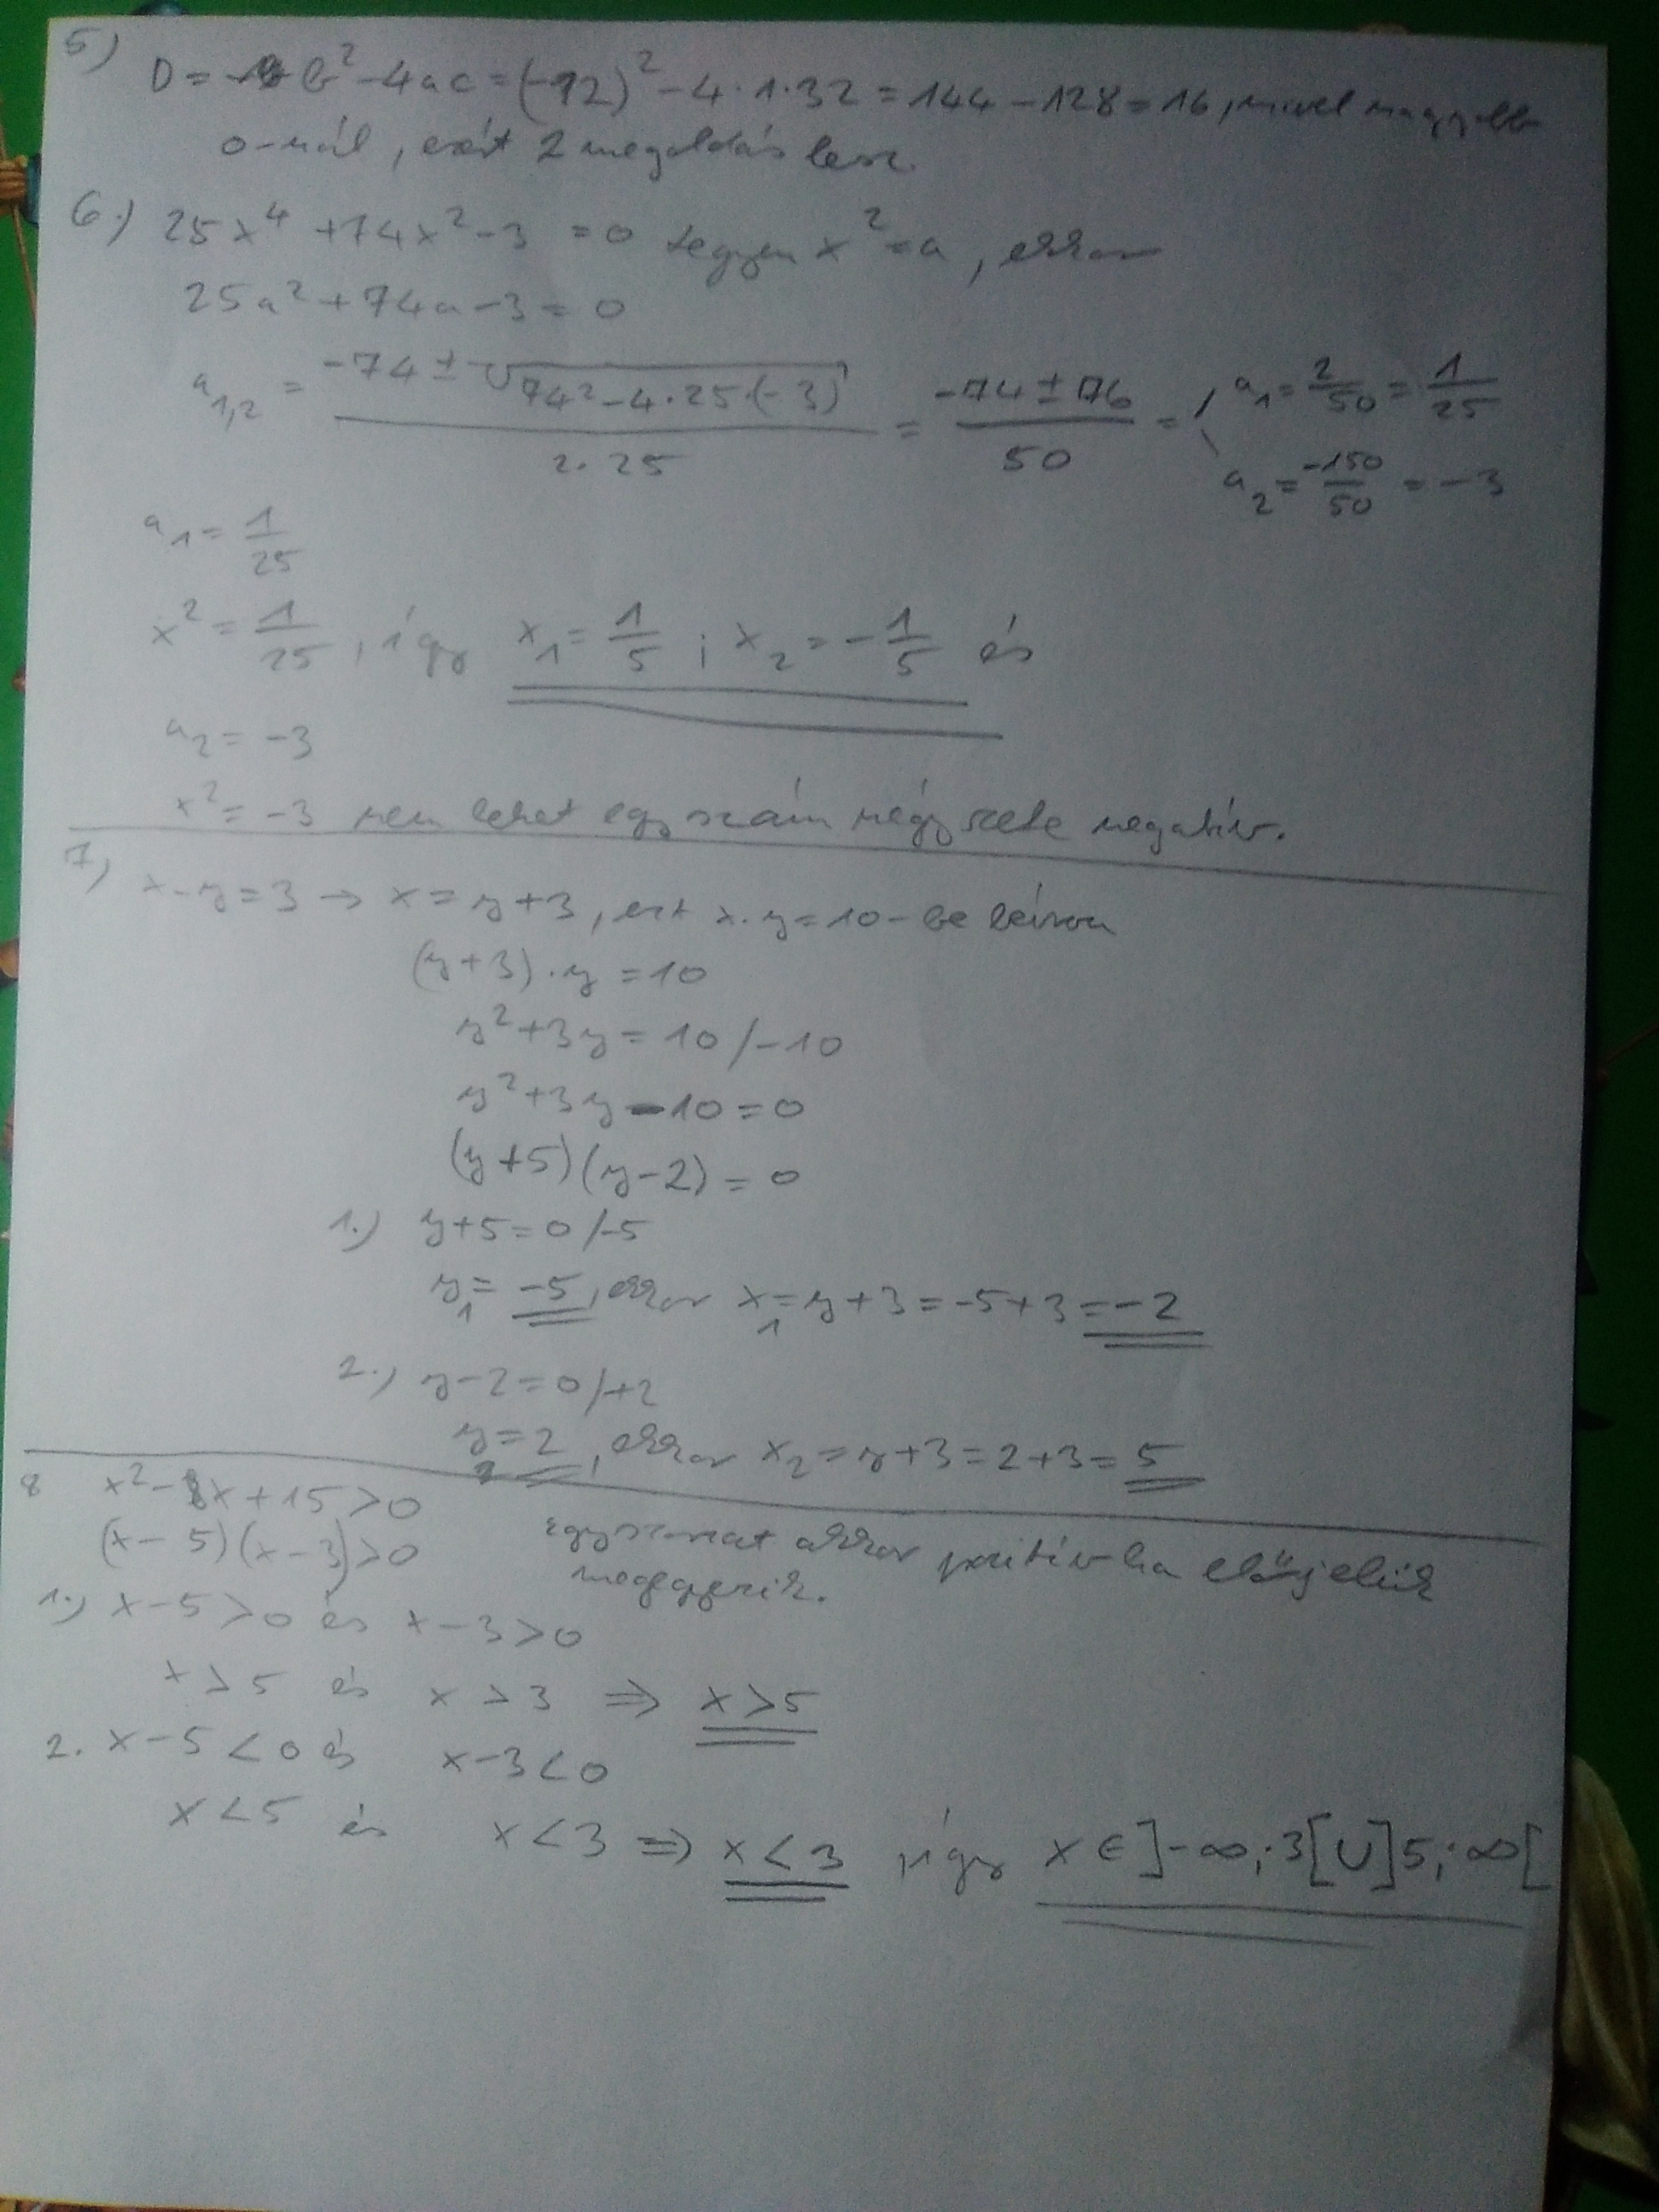 5) D = b² - 4ac = (-12)² - 4·1·32 = 144 - 128 = 16, mivel nagyobb
0-nál, ezért 2 megoldás lesz.
6.) 25x⁴ + 74x² - 3 = 0 legyen x² = a, ekkor
25a² + 74a - 3 = 0
a₁,₂ = (-74 ± √(74² - 4·25·(-3))) / (2·25) = (-74 ± 76) / 50 = a₁ = 2/50 = 1/25
a₂ = -150/50 = -3
a₁ = 1/25
x² = 1/25, így x₁ = 1/5 ; x₂ = -1/5 és
a₂ = -3
x² = -3 nem lehet egy szám négyzete negatív.
7) x - y = 3 → x = y + 3, ezt x·y = 10-be beírva
(y + 3)·y = 10
y² + 3y = 10 /-10
y² + 3y - 10 = 0
(y + 5)(y - 2) = 0
1.) y + 5 = 0 /-5
y₁ = -5, ekkor x₁ = y + 3 = -5 + 3 = -2
2.) y - 2 = 0 /+2
y₂ = 2, ekkor x₂ = y + 3 = 2 + 3 = 5
8 x² - 8x + 15 > 0
(x - 5)(x - 3) > 0 Egy szorzat akkor pozitív ha előjelük
megegyezik.
1.) x - 5 > 0 és x - 3 > 0
x > 5 és x > 3 ⇒ x > 5
2. x - 5 < 0 és x - 3 < 0
x < 5 és x < 3 ⇒ x < 3, így x ∈ ]-∞; 3[ ∪ ]5; ∞[